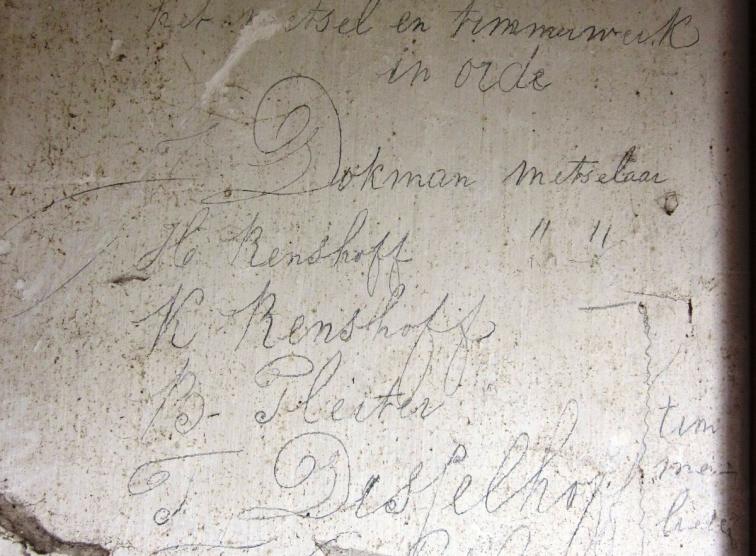 het metsel en timmerwerk
in orde
J Dokman metselaar
H Renshoff " "
K Renshoff
B Pleiter
T Desselhoff
tim
mer
lieden